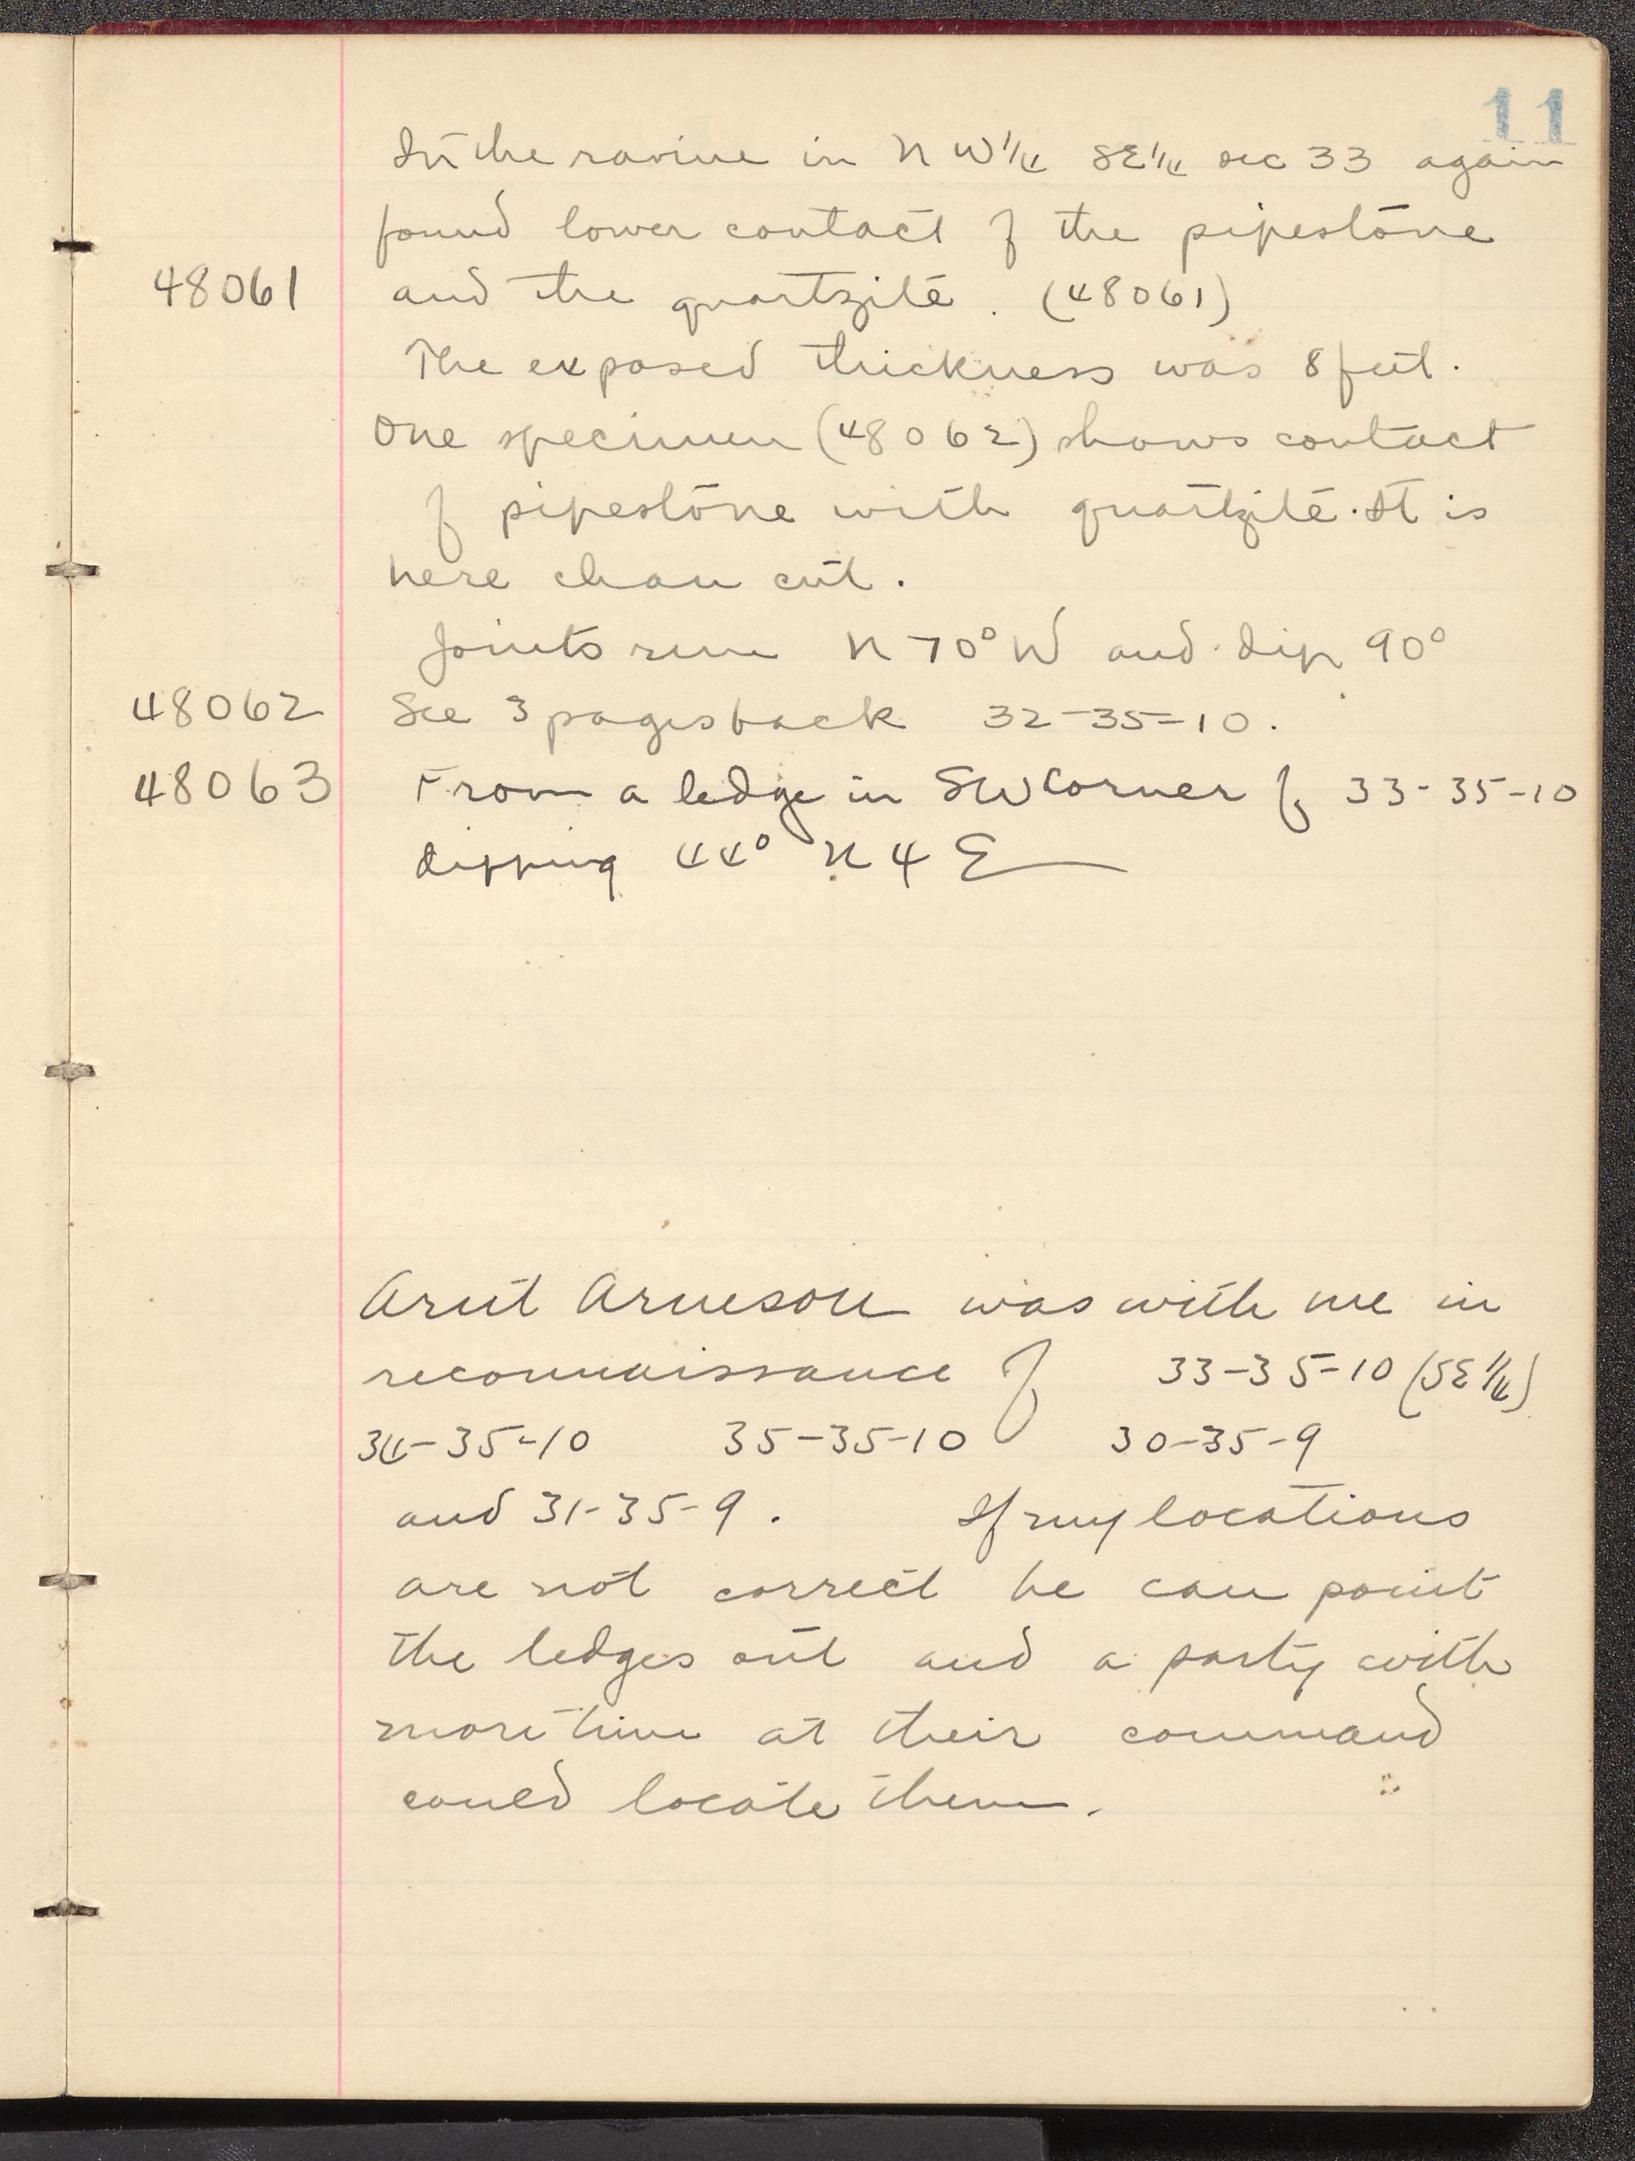 11
In the ravine in NW¼ SE¼ sec 33 again
found lower contact of the pipestone
48061 and the quartzite. (48061)
The exposed thickness was 8 feet.
One specimen (48062) shows contact
of pipestone with quartzite. It is
here clean cut.
Joints run N 70° W and dip 90°
48062 See 3 pages back 32-35-10.
48063 From a ledge in SW Corner of 33-35-10
dipping 44° N 4 E
Arnt Arneson was with me in
reconnaissance of 33-35-10 (SE¼)
34-35-10 35-35-10 30-35-9
and 31-35-9. If my locations
are not correct he can point
the ledges out and a party with
more time at their command
could locate them.